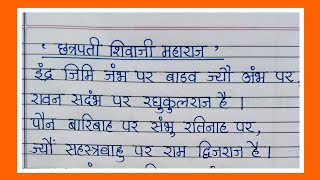 ' छत्रपती शिवाजी महाराज '
इंद्र जिमि जंभ पर बाडव ज्यौ अंभ पर,
रावन सदंभ पर रघुकुलराज है ।
पौन बारिबाह पर संभु रतिनाह पर,
ज्यौं सहस्त्रबाहु पर राम द्विजराज है ।